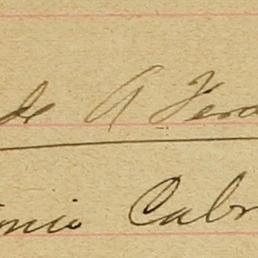 de A Fer
onio Cabr